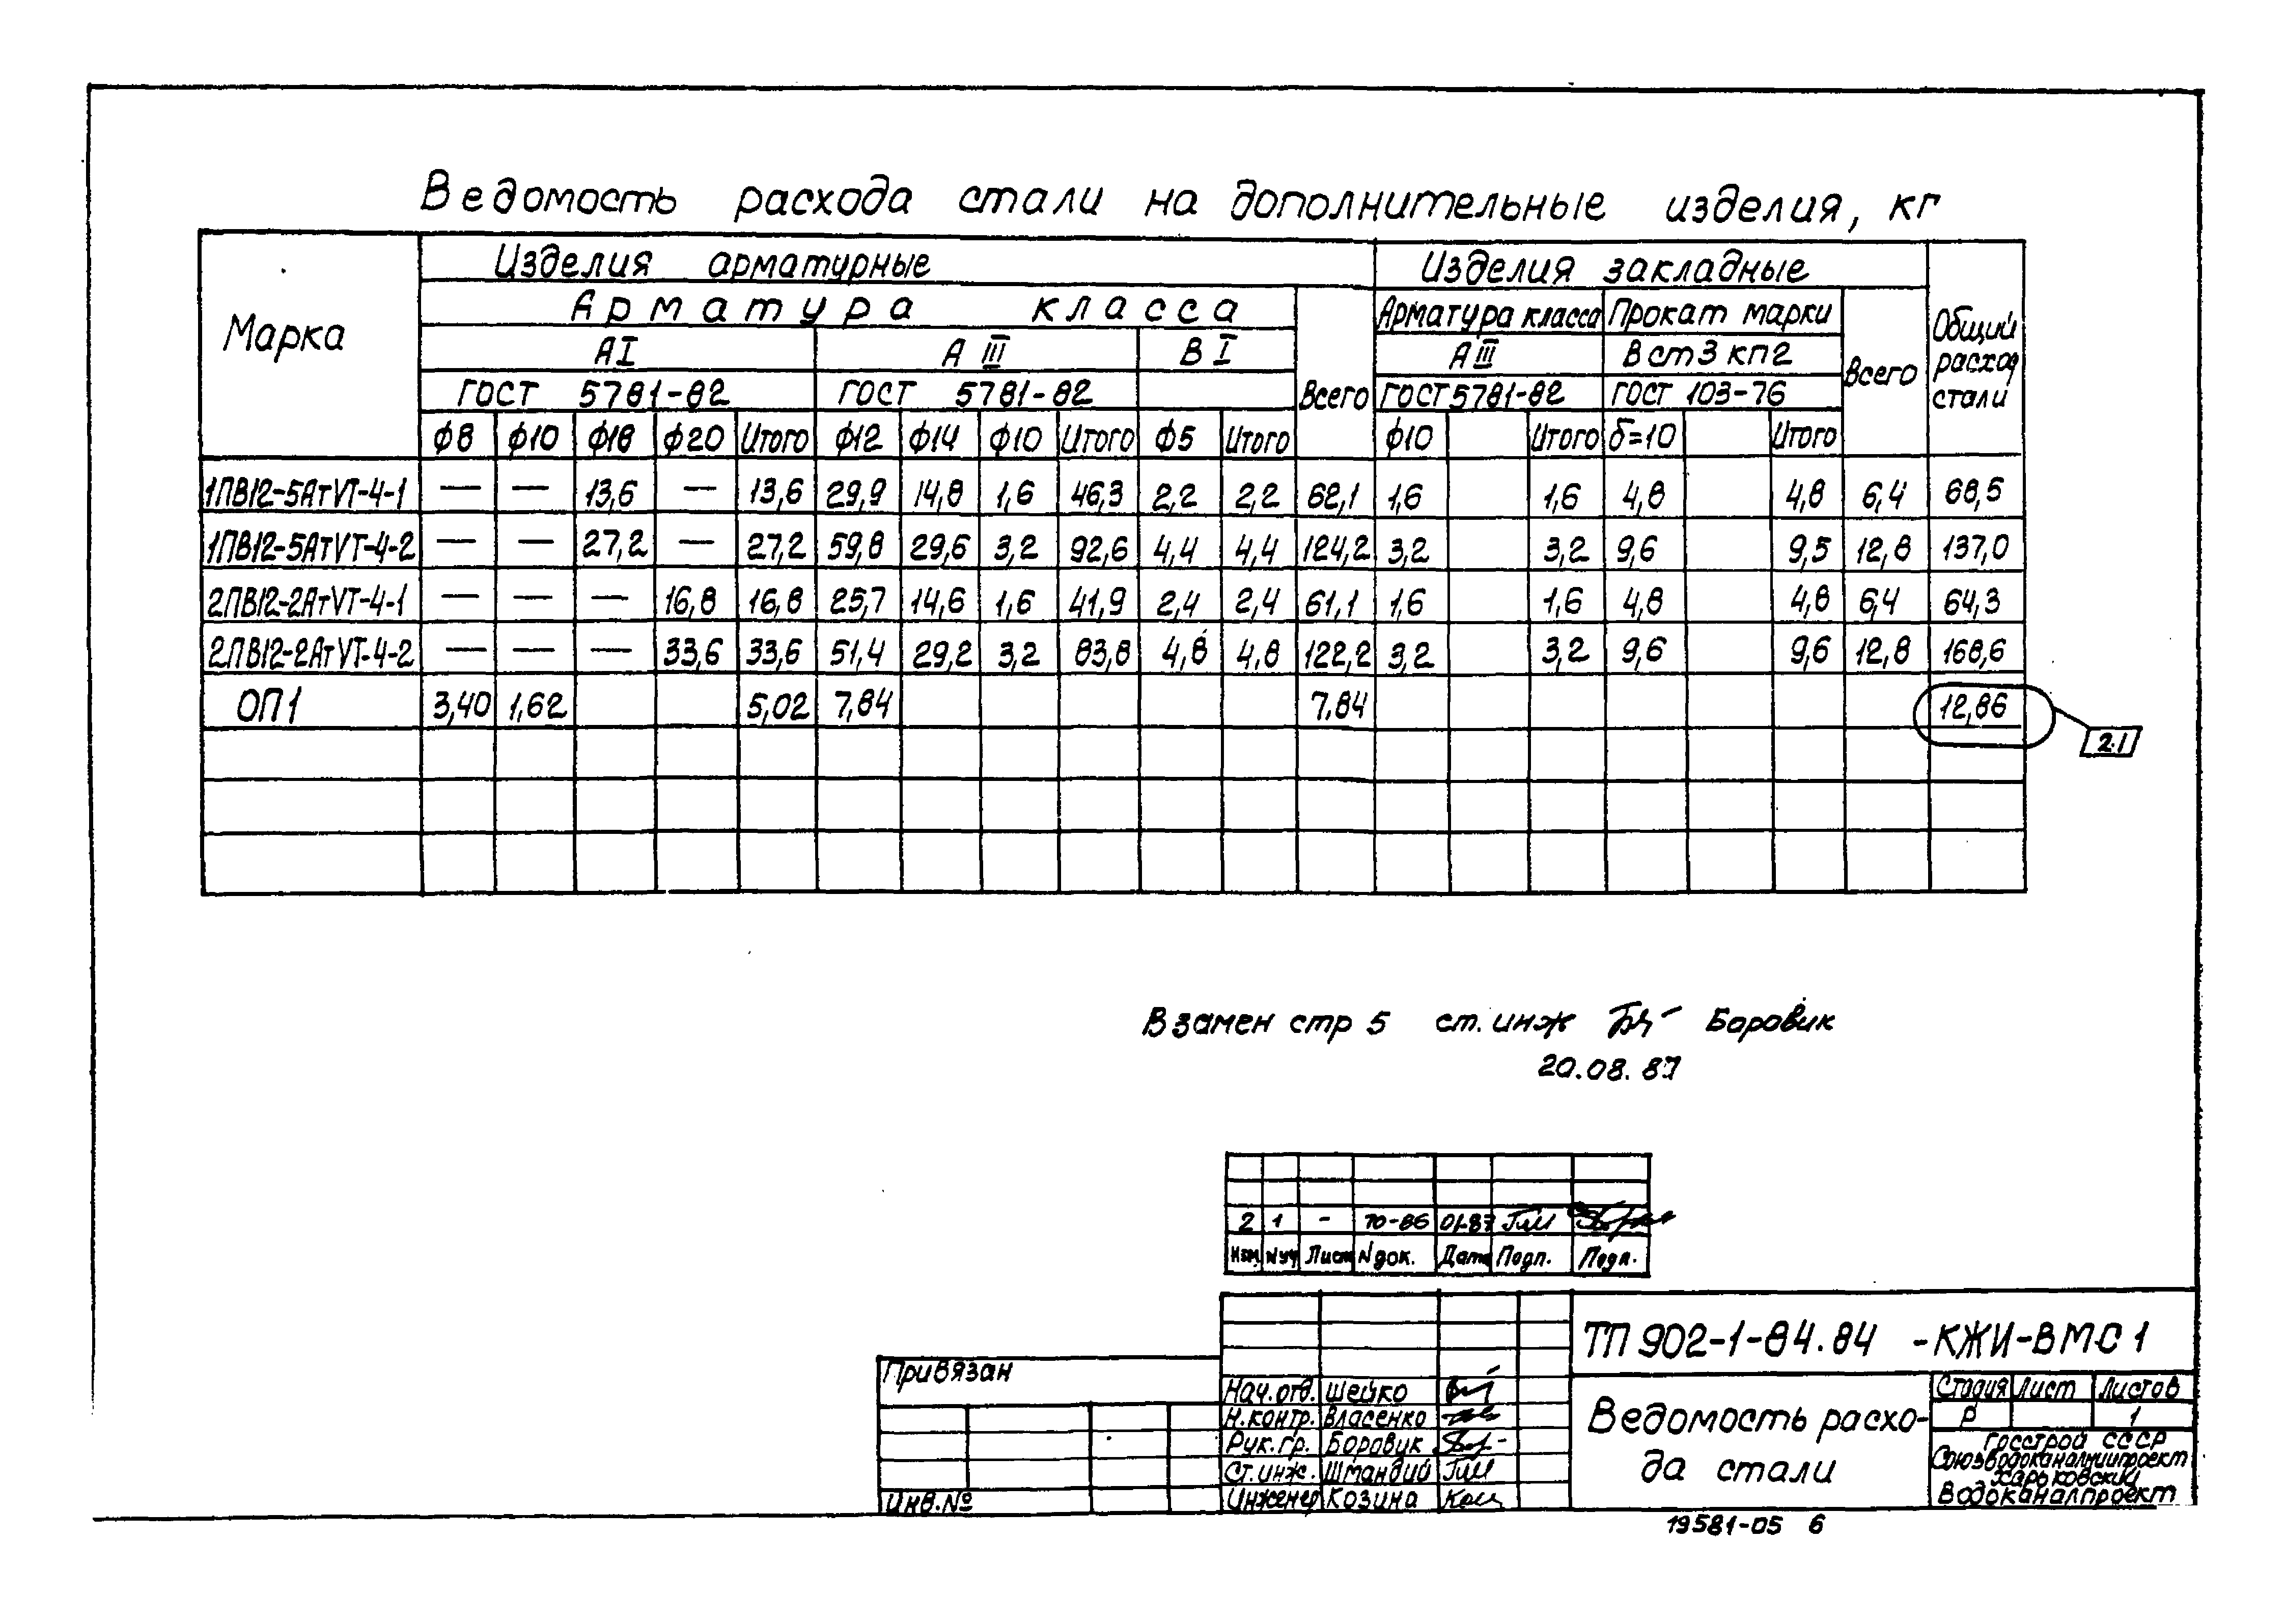 Ведомость расхода стали на дополнительные изделия, кг
Марка Изделия арматурные Изделия закладные Общий расход стали
Арматура класса Всего Арматура класса Прокат марки Всего
АI А III В I А III В ст3 кп2
ГОСТ 5781-82 ГОСТ 5781-82 ГОСТ 5781-82 ГОСТ 103-76
Ф8 Ф10 Ф18 Ф20 Итого Ф12 Ф14 Ф10 Итого Ф5 Итого Ф10 Итого δ=10 Итого
1ПВ12-5АтVТ-4-1 — — 13,6 — 13,6 29,9 14,8 1,6 46,3 2,2 2,2 62,1 1,6 1,6 4,8 4,8 6,4 68,5
1ПВ12-5АтVТ-4-2 — — 27,2 — 27,2 59,8 29,6 3,2 92,6 4,4 4,4 124,2 3,2 3,2 9,6 9,5 12,8 137,0
2ПВ12-2АтVТ-4-1 — — — 16,8 16,8 25,7 14,6 1,6 41,9 2,4 2,4 61,1 1,6 1,6 4,8 4,8 6,4 64,3
2ПВ12-2АтVТ-4-2 — — — 33,6 33,6 51,4 29,2 3,2 83,8 4,8 4,8 122,2 3,2 3,2 9,6 9,6 12,8 168,6
ОП1 3,40 1,62 5,02 7,84 7,84 12,86
2.1
Взамен стр 5 ст. инж Боровик
20.08.87
2 1 - 70-86 01-87
Изм. №уч Лист N док. Дата Подп. Подп.
ТП 902-1-84.84 -КЖИ-ВМС1
Привязан
Нач.отд. Шейко
Н.контр. Власенко
Рук.гр. Боровик
Ст.инж. Шмандий
Инженер Козина
Инв.№
Ведомость расхо-
да стали
Стадия Лист Листов
Р 1
Госстрой СССР
Союзводоканалниипроект
Харьковский
Водоканалпроект
19581-05 6